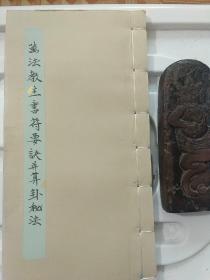 萬法教主書符要訣并算卦秘法